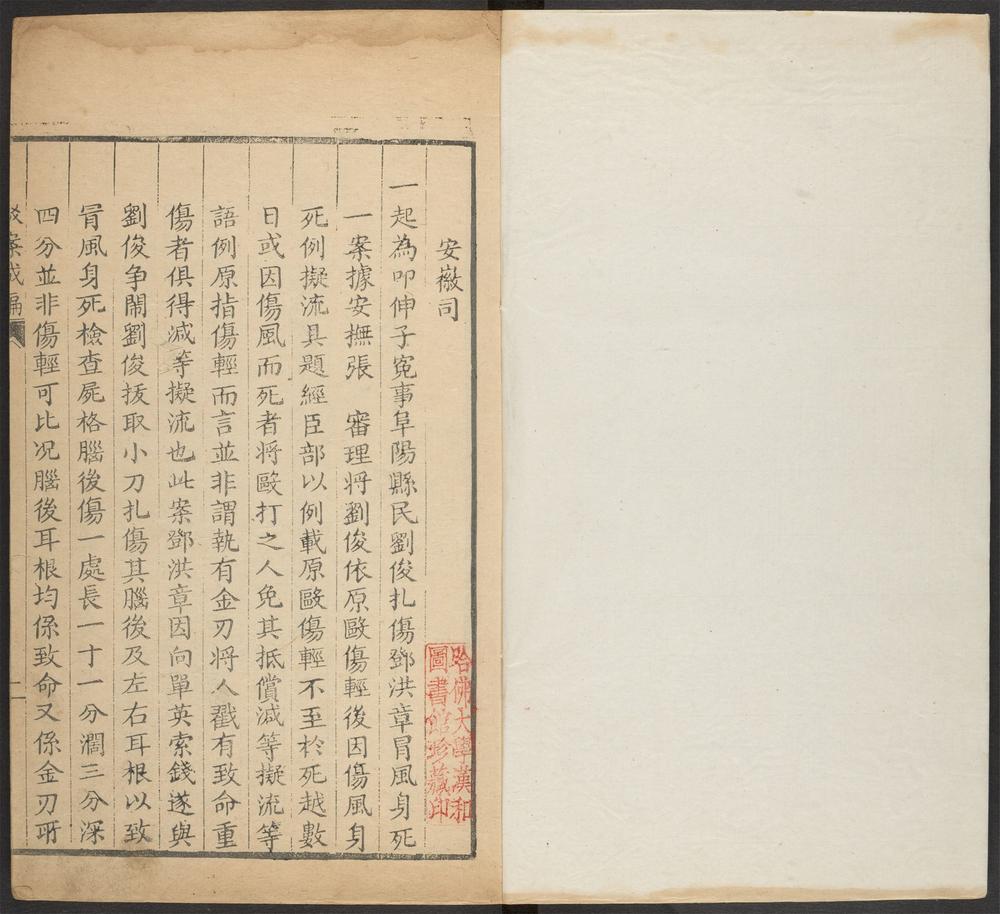 安嶶司
一起為叩伸子寃事阜陽縣民劉俊扎傷鄧洪章冒風身死
一案據安撫張　審理將劉俊依原毆傷輕後因傷風身
死例擬流具題經臣部以例載原毆傷輕不至於死越數
日或因傷風而死者將毆打之人免其抵償減等擬流等
語例原指傷輕而言並非謂執有金刃將人戳有致命重
傷者俱得減等擬流也此案鄧洪章因向單英索錢遂與
劉俊争鬧劉俊拔取小刀扎傷其腦後及左右耳根以致
冐風身死檢查屍格腦後傷一處長一寸一分濶三分深
四分並非傷輕可比况腦後耳根均係致命又係金刃所
案成編
一
哈佛大學漢和
圖書館珍藏印